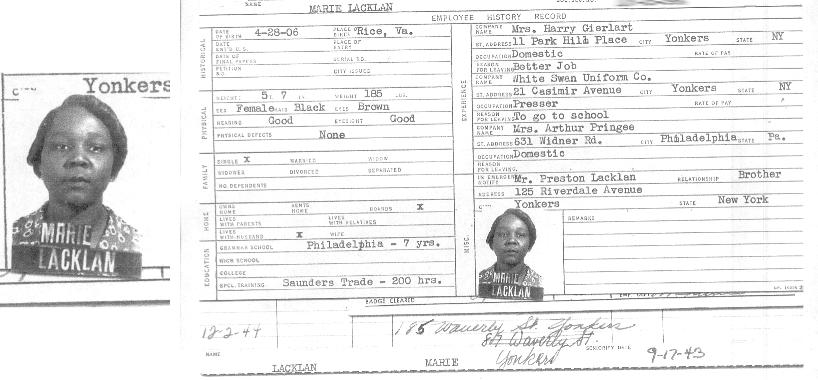 NAME
MARIE LACKLAN
EMPLOYEE HISTORY RECORD
DATE OF BIRTH 4-28-06 PLACE OF BIRTH Rice, Va.
DATE ENT'D U.S. PLACE OF ENTRY
DATE OF FINAL PAPERS SERIAL NO.
PETITION NO. CITY ISSUED
HISTORICAL
HEIGHT: 5, 7 WEIGHT 185 LBS.
SEX Female HAIR Black EYES Brown
HEARING Good EYESIGHT Good
PHYSICAL DEFECTS None
PHYSICAL
SINGLE X MARRIED WIDOW
WIDOWER DIVORCED SEPARATED
NO. DEPENDENTS
FAMILY
OWNS HOME RENTS HOME BOARDS X
LIVES WITH PARENTS LIVES WITH RELATIVES
LIVES WITH HUSBAND X WIFE
HOME
GRAMMAR SCHOOL Philadelphia - 7 yrs.
HIGH SCHOOL
COLLEGE
SPCL. TRAINING Saunders Trade - 200 hrs.
EDUCATION
COMPANY NAME Mrs. Harry Gierlart
ST. ADDRESS 11 Park Hill Place CITY Yonkers STATE NY
OCCUPATION Domestic RATE OF PAY
REASON FOR LEAVING Better Job
COMPANY NAME White Swan Uniform Co.
ST. ADDRESS 21 Casimir Avenue CITY Yonkers STATE NY
OCCUPATION Presser RATE OF PAY
REASON FOR LEAVING To go to school
COMPANY NAME Mrs. Arthur Pringee
ST. ADDRESS 631 Widner Rd. CITY Philadelphia STATE Pa.
OCCUPATION Domestic
REASON FOR LEAVING
EXPERIENCE
IN EMERGENCY NOTIFY Mr. Preston Lacklan RELATIONSHIP Brother
ADDRESS 125 Riverdale Avenue
Yonkers STATE New York
MISC.
REMARKS
MARIE
LACKLAN
Yonkers
MARIE
LACKLAN
BADGE CLEARED
12-2-44
185 Waverly St. Yonkers
87 Waverly St.
Yonkers
SENIORITY DATE 9-17-43
NAME
LACKLAN MARIE